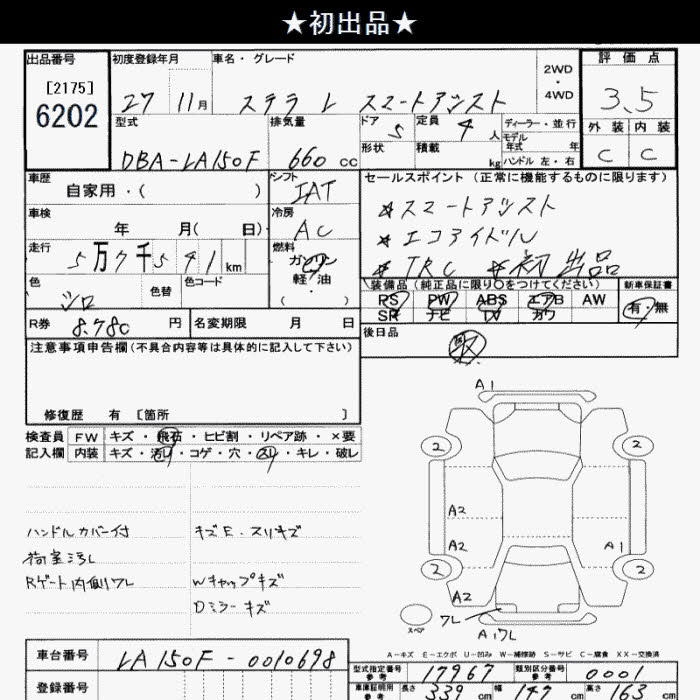 ★初出品★
出品番号
[2175]
6202
初度登録年月
27 11月
車名・グレード
ステラ L スマートアシスト
2WD
・
4WD
評価点
3.5
外装 内装
C C
型式
DBA-LA150F
排気量
660 cc
ドア
5
形状
定員
4 人
積載
kg
ディーラー・並行
モデル
年式 年
ハンドル 左・右
車歴
自家用・( )
シフト
IAT
車検
年 月( 日)
冷房
AC
走行
5万7千541km
燃料
ガソリン
軽・油
( )
色
シロ
色替
色コード
R券 8.780 円
名変期限 月 日
セールスポイント (正常に機能するものに限ります)
☆スマートアシスト
☆エコアイドル
☆TRC ☆初出品
装備品 (純正品に限り○をつけてください)
PS PW ABS エアB AW
SR ナビ TV カワ
新車保証書
有・無
後日品
取
注意事項申告欄(不具合内容等は具体的に記入して下さい)
修復歴 有 [箇所 ]
検査員
記入欄
FW キズ・飛石・ヒビ割・リペア跡・×要
内装 キズ・汚レ・コゲ・穴・スリ・キレ・破レ
ハンドルカバー付
荷室ヨゴレ
Rゲート内側ワレ
キズE.スリキズ
Wキャップキズ
Dミラーキズ
A1
2 2
A2
A2 A1
2 2
A2
ワレ
スペア
A1ワレ
A-キズ E-エクボ U-凹み W-補修跡 S-サビ C-腐食 XX-交換済
車台番号 LA150F-0010698
登録番号
型式指定番号
参考
17967
類別区分番号
参考
0001
車庫証明用
参考
長さ 339 cm 幅 147 cm 高さ 163 cm